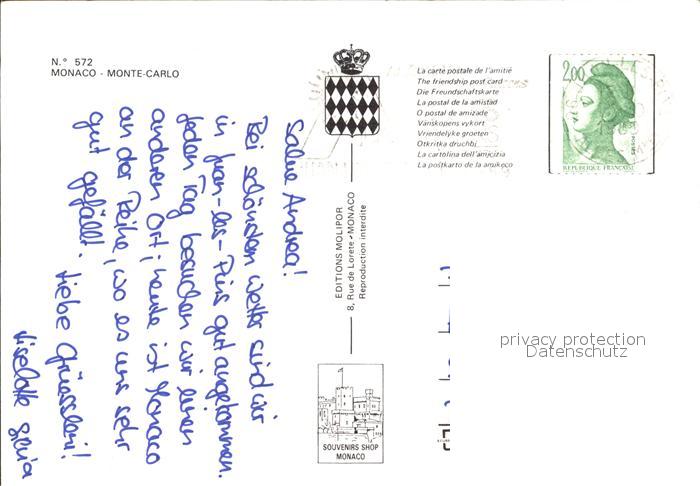 N.° 572
MONACO - MONTE-CARLO
Salue Andrea!
Bei schönstem Wetter sind wir
in Juan-les-Pins gut angekommen.
Jeden Tag besuchen wir einen
anderen Ort; heute ist Monaco
an der Reihe, wo es uns sehr
gut gefällt. Liebe Grüessli!
Liselotte
EDITIONS MOLIPOR
8, Rue de Lorete - MONACO
Reproduction interdite
La carte postale de l'amitié
The friendship post card
Die Freundschaftskarte
La postal de la amistad
O postal de amizade
Vänskopens vykort
Vriendelyke groeten
Otkritka druchbi
La cartolina dell'amicizia
La poŝtkarto de la amikeco
2,00
REPUBLIQUE FRANÇAISE
privacy protection
Datenschutz
SOUVENIRS SHOP
MONACO